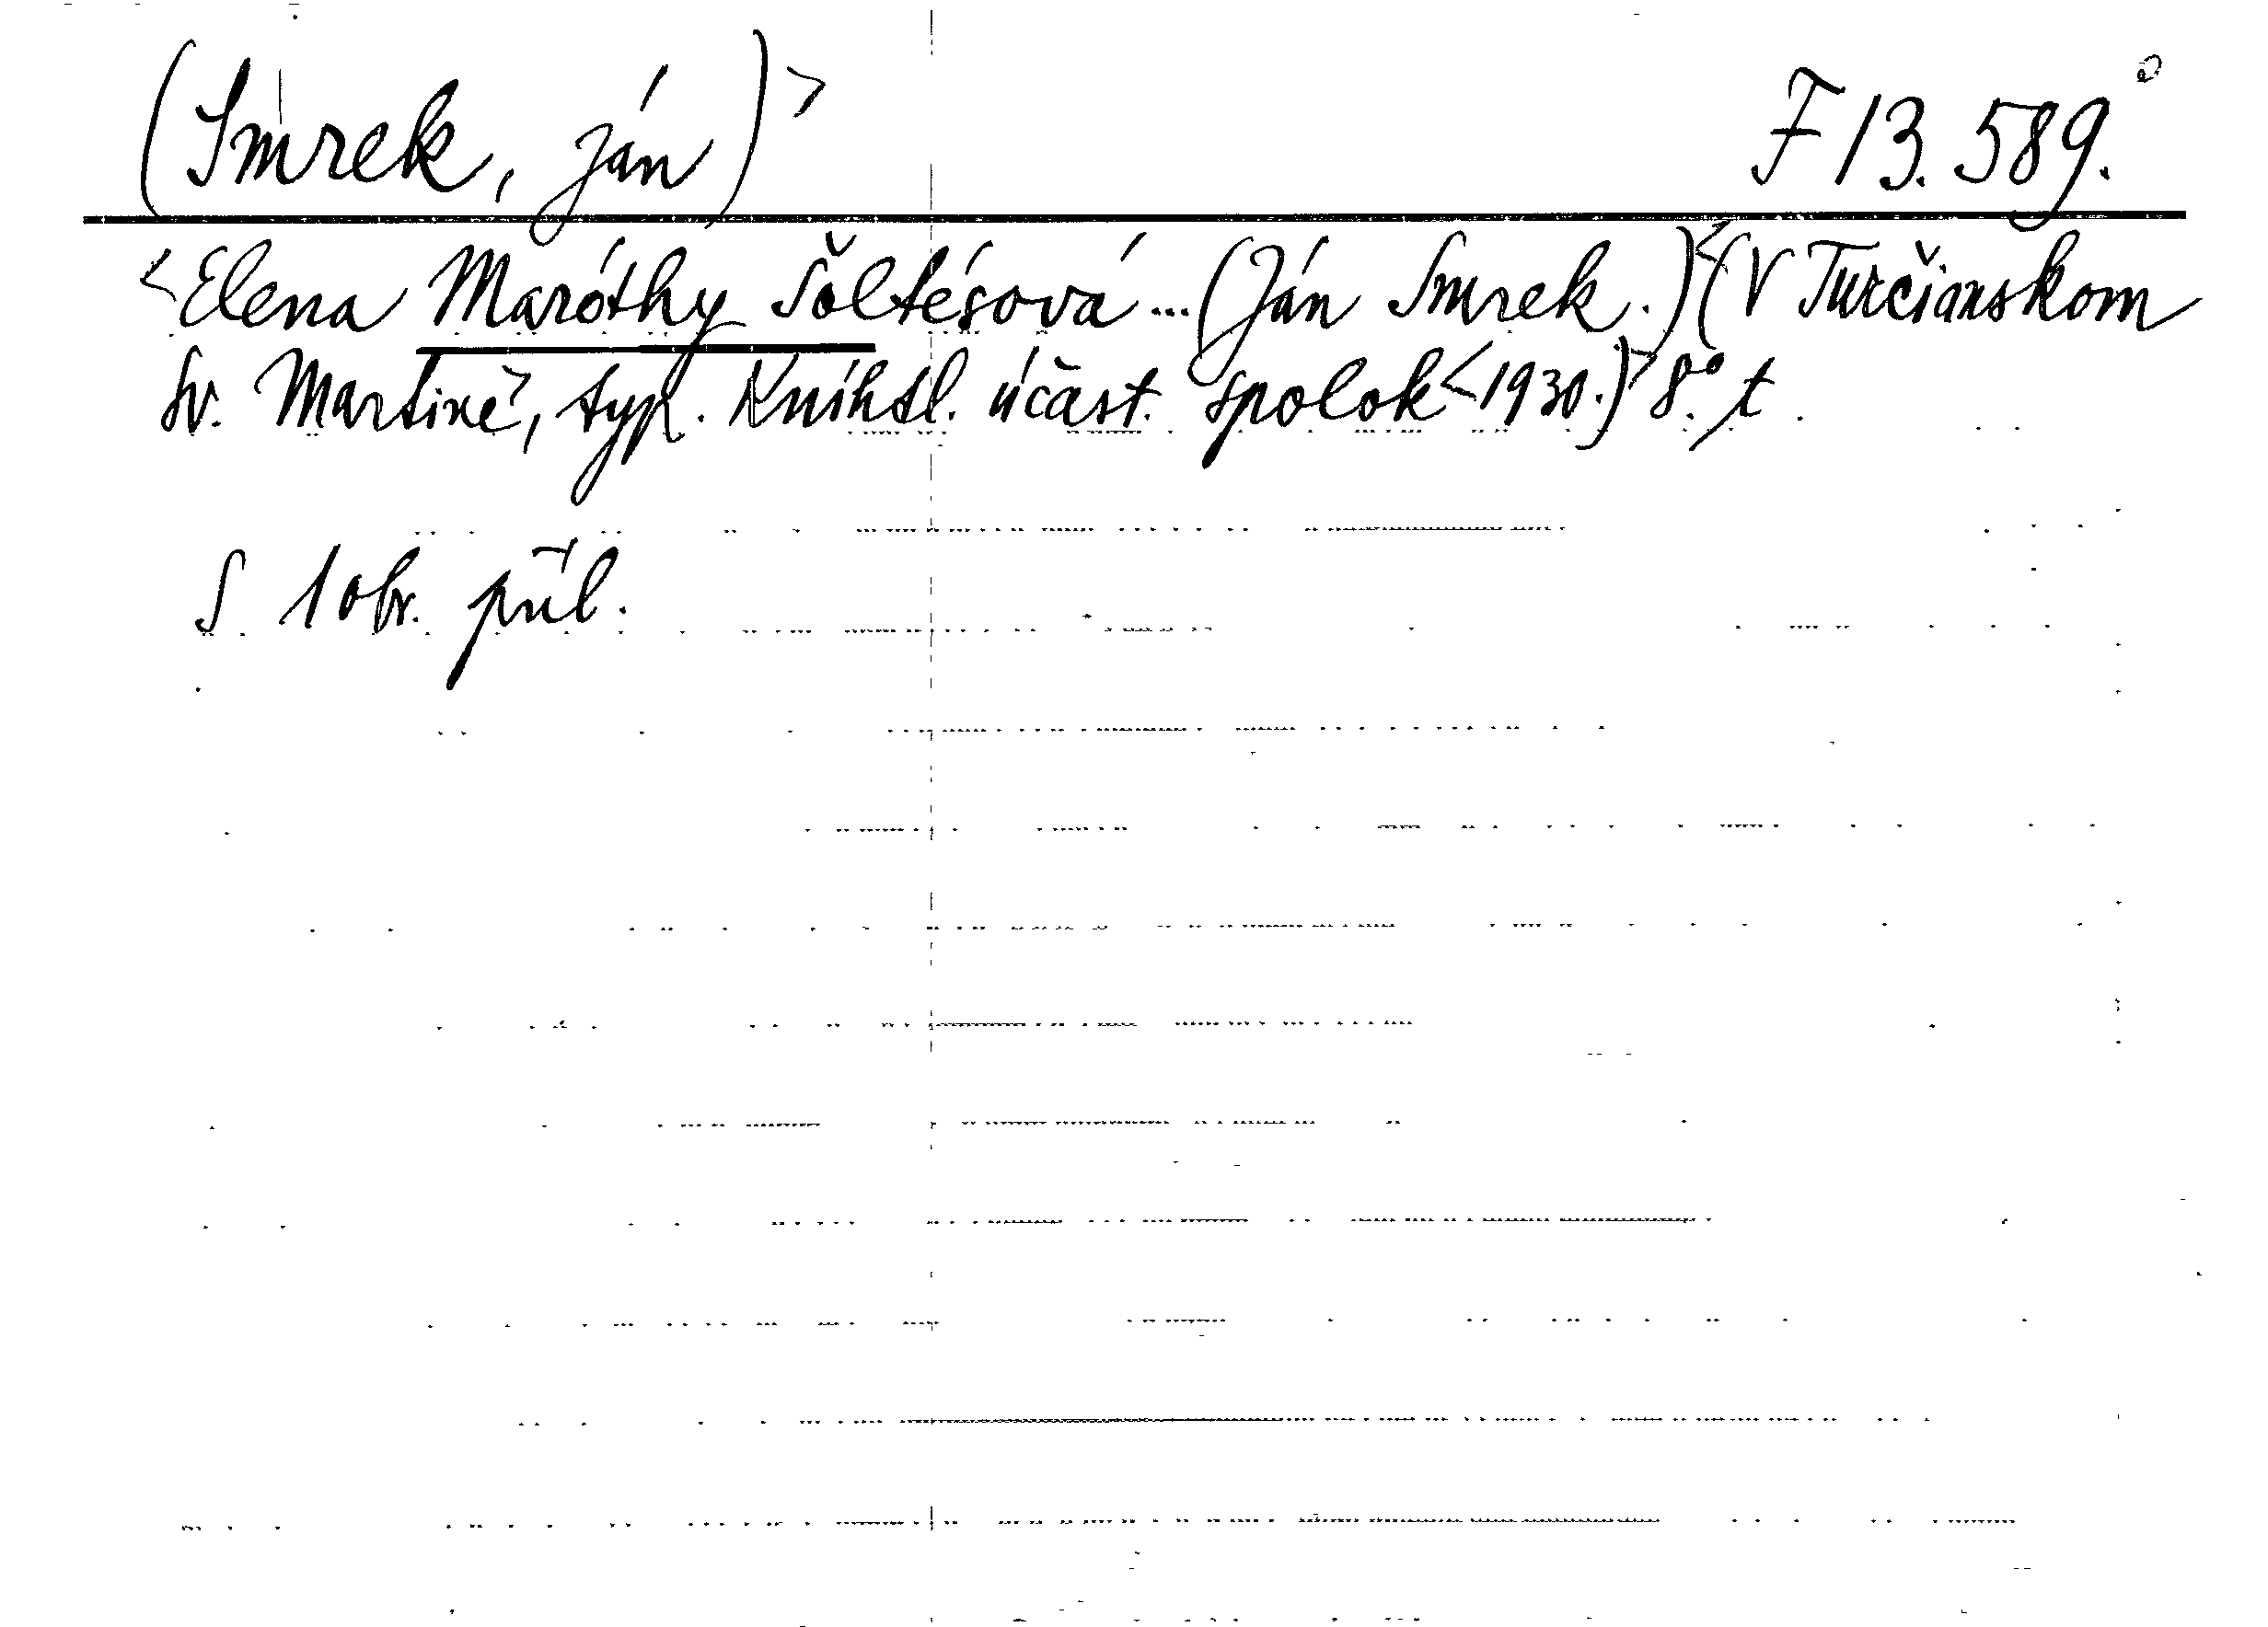 (Smrek, Ján)> F 13.589.
<Elena Maróthy Šoltésová... (Ján Smrek.)<(V Turčianskom
Sv. Martině, typ. Kníhtl. účast. spolok<1930.)> 8.° t.
S 1 obr. příl.